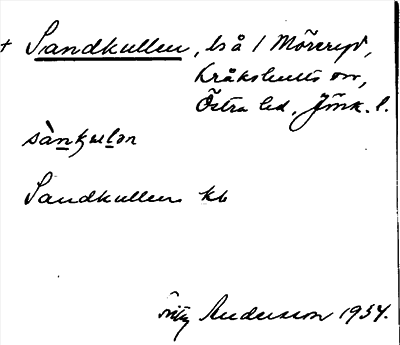 + Sandkullen, bs å 1 Möreryd,
Kråkshults sn,
Östra hd, Jönk. l.
sànkulən
Sandkullen kb
Andersson 1934.